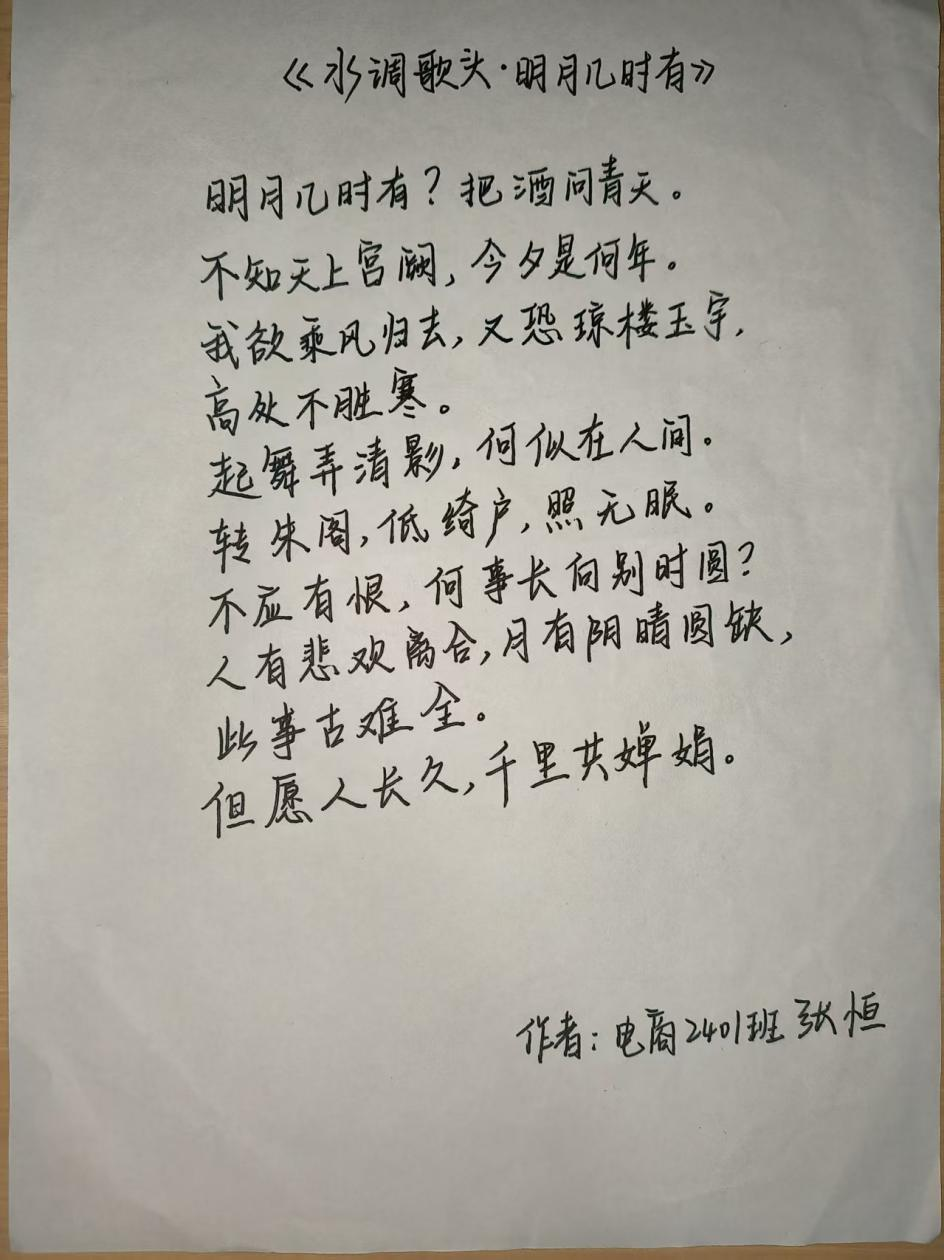 《水调歌头·明月几时有》
明月几时有？把酒问青天。
不知天上宫阙，今夕是何年。
我欲乘风归去，又恐琼楼玉宇，
高处不胜寒。
起舞弄清影，何似在人间。
转朱阁，低绮户，照无眠。
不应有恨，何事长向别时圆？
人有悲欢离合，月有阴晴圆缺，
此事古难全。
但愿人长久，千里共婵娟。
作者：电商2401班 张恒